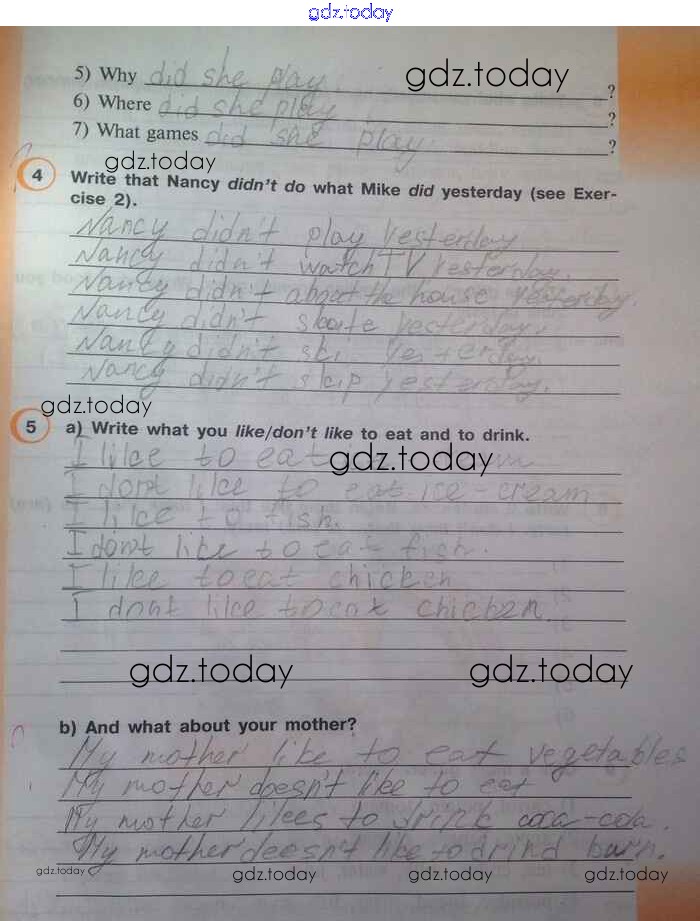 gdz.today
5) Why did she play ?
gdz.today
6) Where did she play ?
7) What games did she play ?
gdz.today
4 Write that Nancy didn't do what Mike did yesterday (see Exer-
cise 2).
Nancy didn't play yesterday.
Nancy didn't watch TV yesterday.
Nancy didn't about the house yesterday.
Nancy didn't skate yesterday.
Nancy didn't ski yesterday.
Nancy didn't skip yesterday.
gdz.today
5 a) Write what you like/don't like to eat and to drink.
I like to eat
gdz.today
I dont like to eat ice-cream
I like to fish.
I dont like to eat fish.
I like to eat chicken
I dont like to eat chicken.
gdz.today gdz.today
b) And what about your mother?
My mother like to eat vegetables
My mother doesn't like to eat
My mother likees to drink coca-cola.
My mother doesn't like to drind
gdz.today gdz.today gdz.today gdz.today